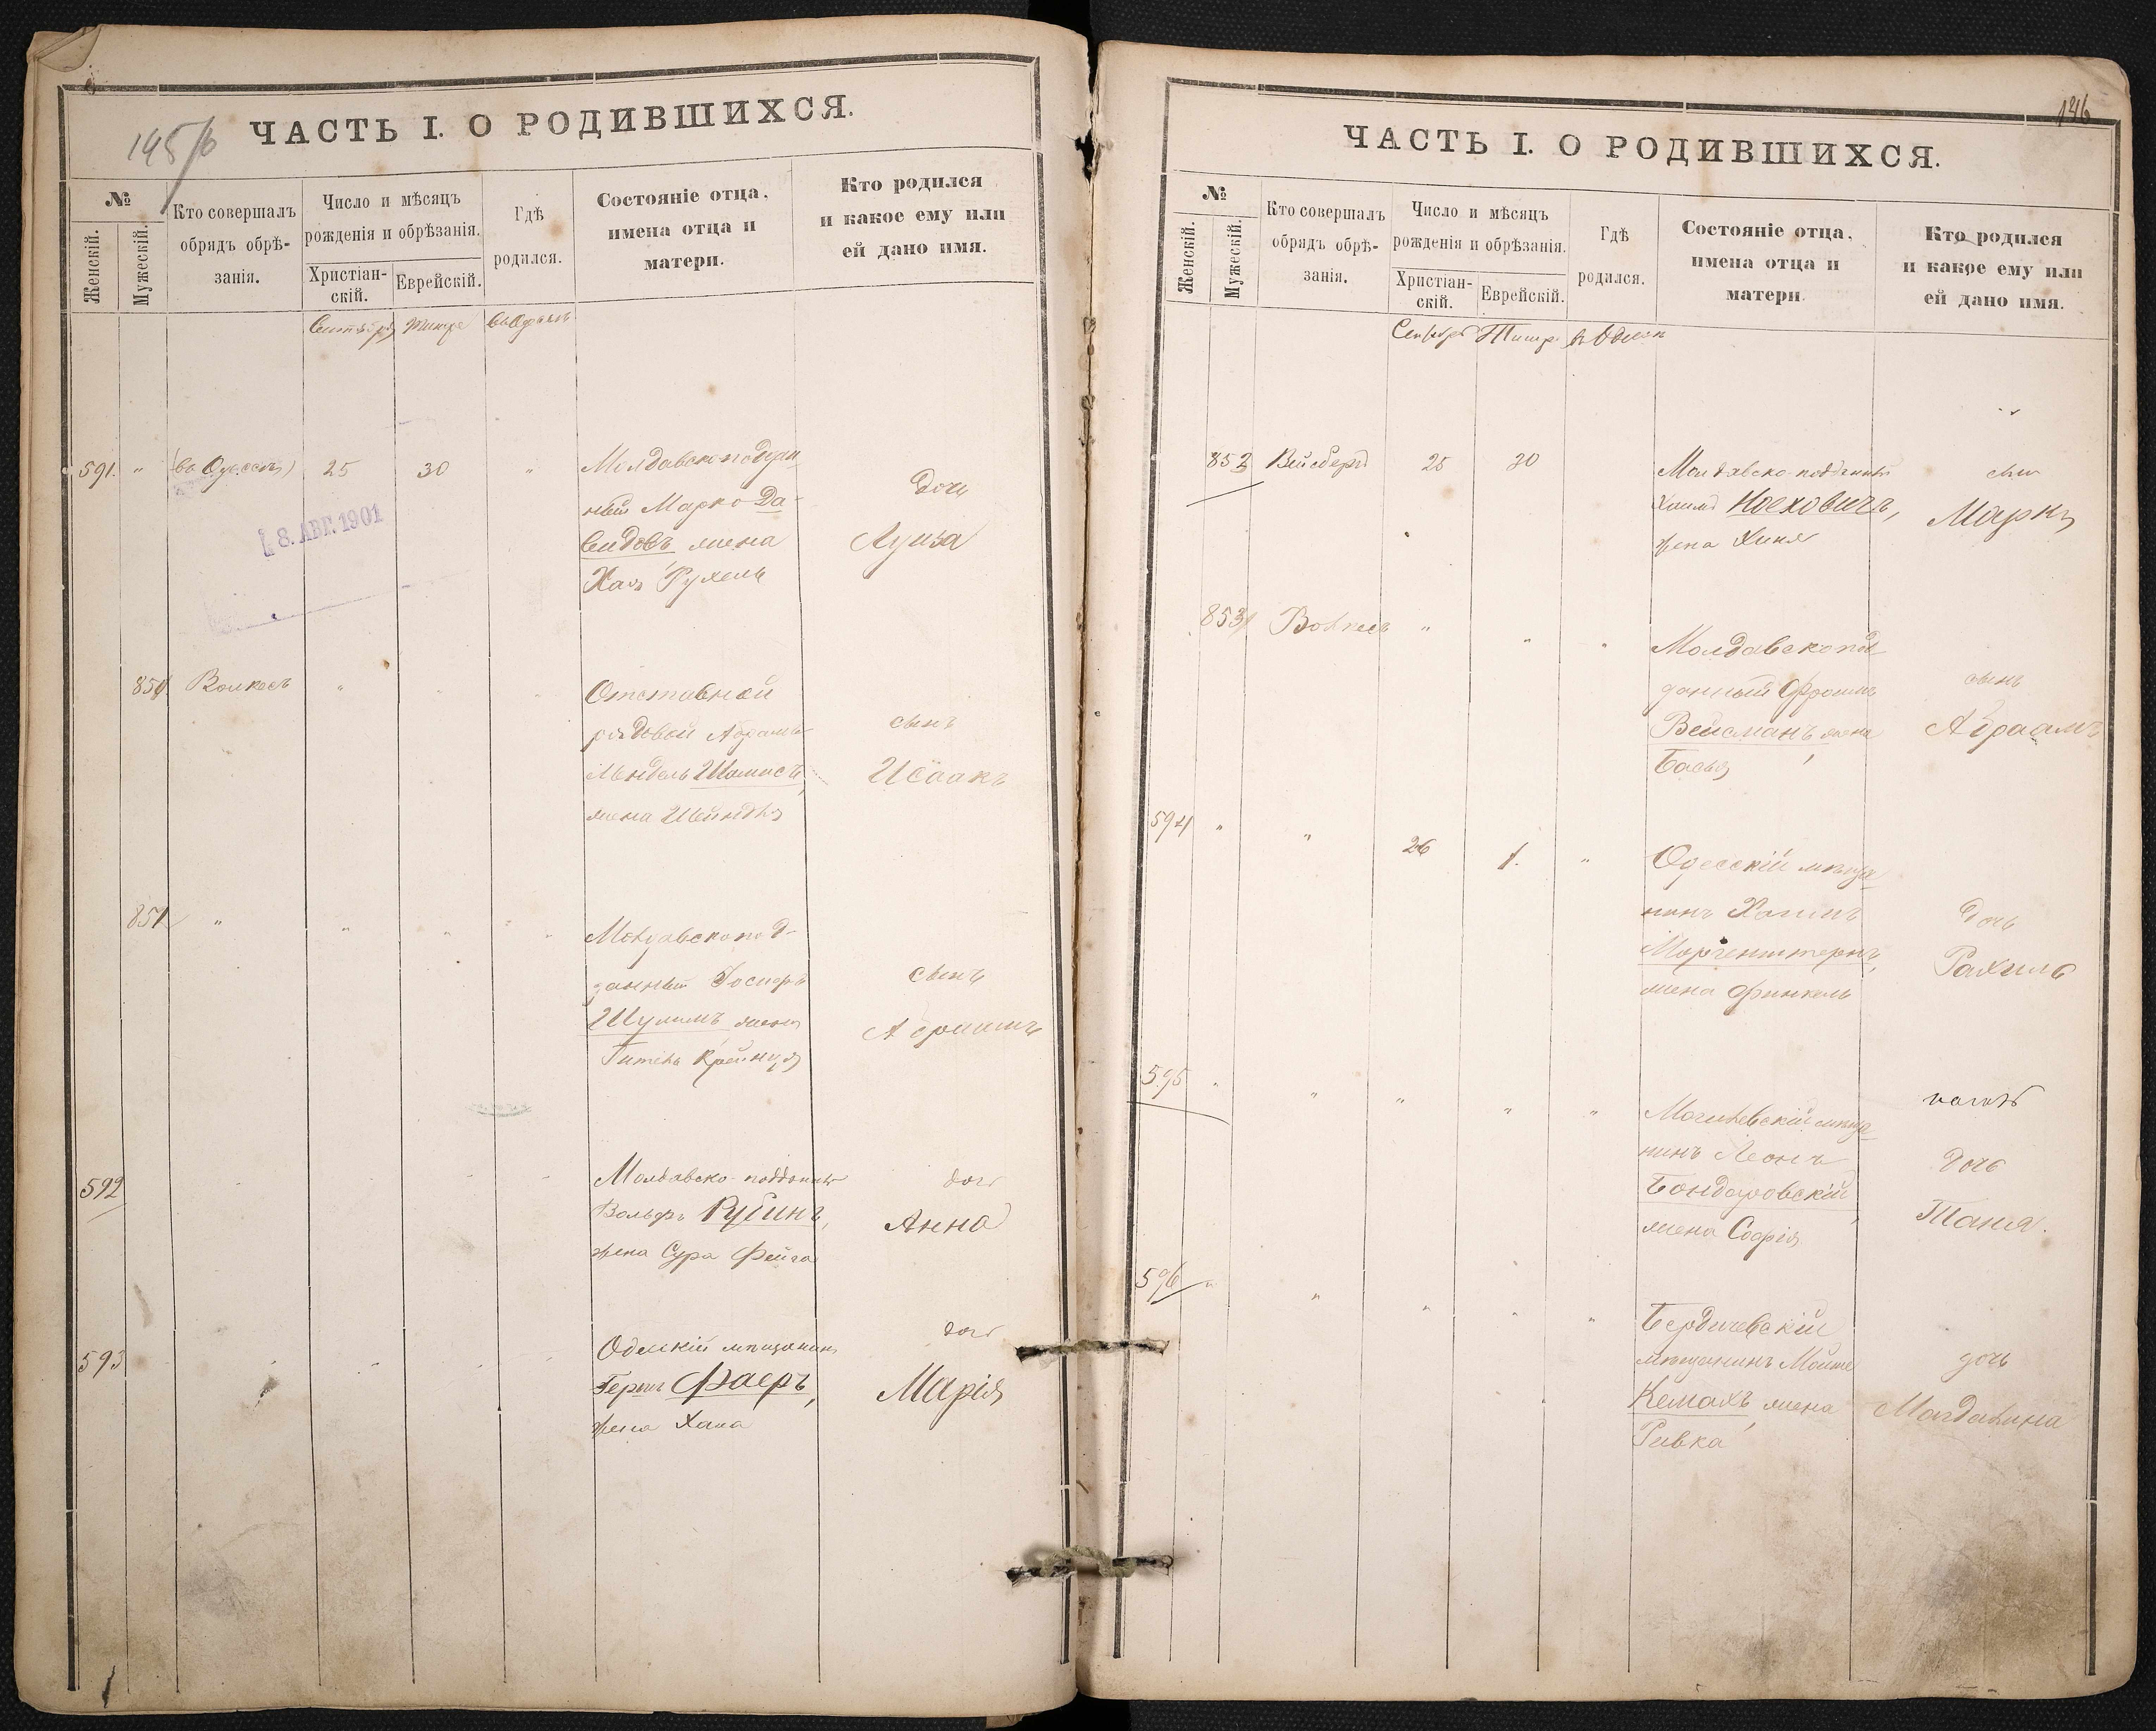 ЧАСТЬ I. О РОДИВШИХСЯ.
№
Женскій.
Мужескій.
Кто совершалъ
обрядъ обрѣ-
занія.
Число и мѣсяцъ
рожденія и обрѣзанія.
Христіан-
скій.
Еврейскій.
Гдѣ
родился.
Состояніе отца,
имена отца и
матери.
Кто родился
и какое ему или
ей дано имя.
Сентября Тишре въ Одессѣ
591. " (въ Одессѣ) 25 30 "
Молдавскоподдан-
ный Марко Да-
видовъ жена
Хая Рухель
дочь
Луиза
8. АВГ. 1901
Волкесъ " " "
Отставной
рядовой Абрамъ
Мендель
жена Шейндля
сынъ
Исаакъ
851 " " " "
Молдавскопод-
данный Іосифъ
Шулимъ жена
Гитель Крейнця
сынъ
592
Молдавско-подданный
Вольфъ Рубинъ,
жена Сура Фейга
дочь
Анна
593
Одесскій мѣщанинъ
Гершъ Фаеръ,
жена Хана
дочь
Марія
146
ЧАСТЬ I. О РОДИВШИХСЯ.
№
Женскій.
Мужескій.
Кто совершалъ
обрядъ обрѣ-
занія.
Число и мѣсяцъ
рожденія и обрѣзанія.
Христіан-
скій.
Еврейскій.
Гдѣ
родился.
Состояніе отца,
имена отца и
матери
Кто родился
и какое ему или
ей дано имя.
Сентябрь Тишр. въ Одессѣ
852 Вейсбергъ 25 30
Молдавско-подданный
Хаимъ Ноеховичъ,
жена Хиня
сынъ
Маркъ
853 Волкесъ " " "
Молдавскопод-
данный Фроимъ
Вейсманъ жена
Басья
сынъ
Абраамъ
594 " " 26 1. "
Одесскій мѣща-
нинъ Хаимъ
Моргенштернъ,
жена Финкель
дочь
Рахиль
595 " " " " "
Могилевскій мѣща-
нинъ Леонъ
Бондаровскій,
жена Софія
дочь
Таня.
596 " " " " "
Бердичевскій
мѣщанинъ Мойше
Кемахъ, жена
Ривка
дочь
Магдалина